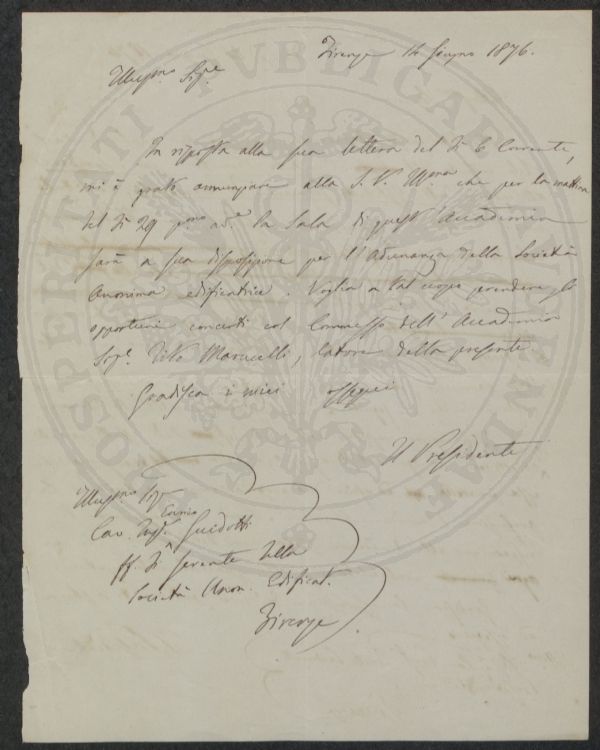 Firenze 14 Giugno 1876.
Illus.mo Sig.re
In risposta alla sua lettera del dì 6 Corrente,
mi è grato annunziare alla S. V. Ill.ma che per la mattina
del dì 29 p.mo ad.e la Sala di quest' Accademia
sarà a sua disposizione per l'Adunanza della Società
Anonima edificatrice. Voglia a tal uopo prendere gli
opportuni concerti col Commesso dell' Accademia
Sig.e Vito Marucelli, latore della presente.
Gradisca i miei ossequi
Il Presidente
Illus.mo Sig.
Cav. Ing.e Guidotti
ff. di Gerente della
Società Anon. Edificat.
Firenze
PROSPERITATI PUBLICAE AUGENDAE